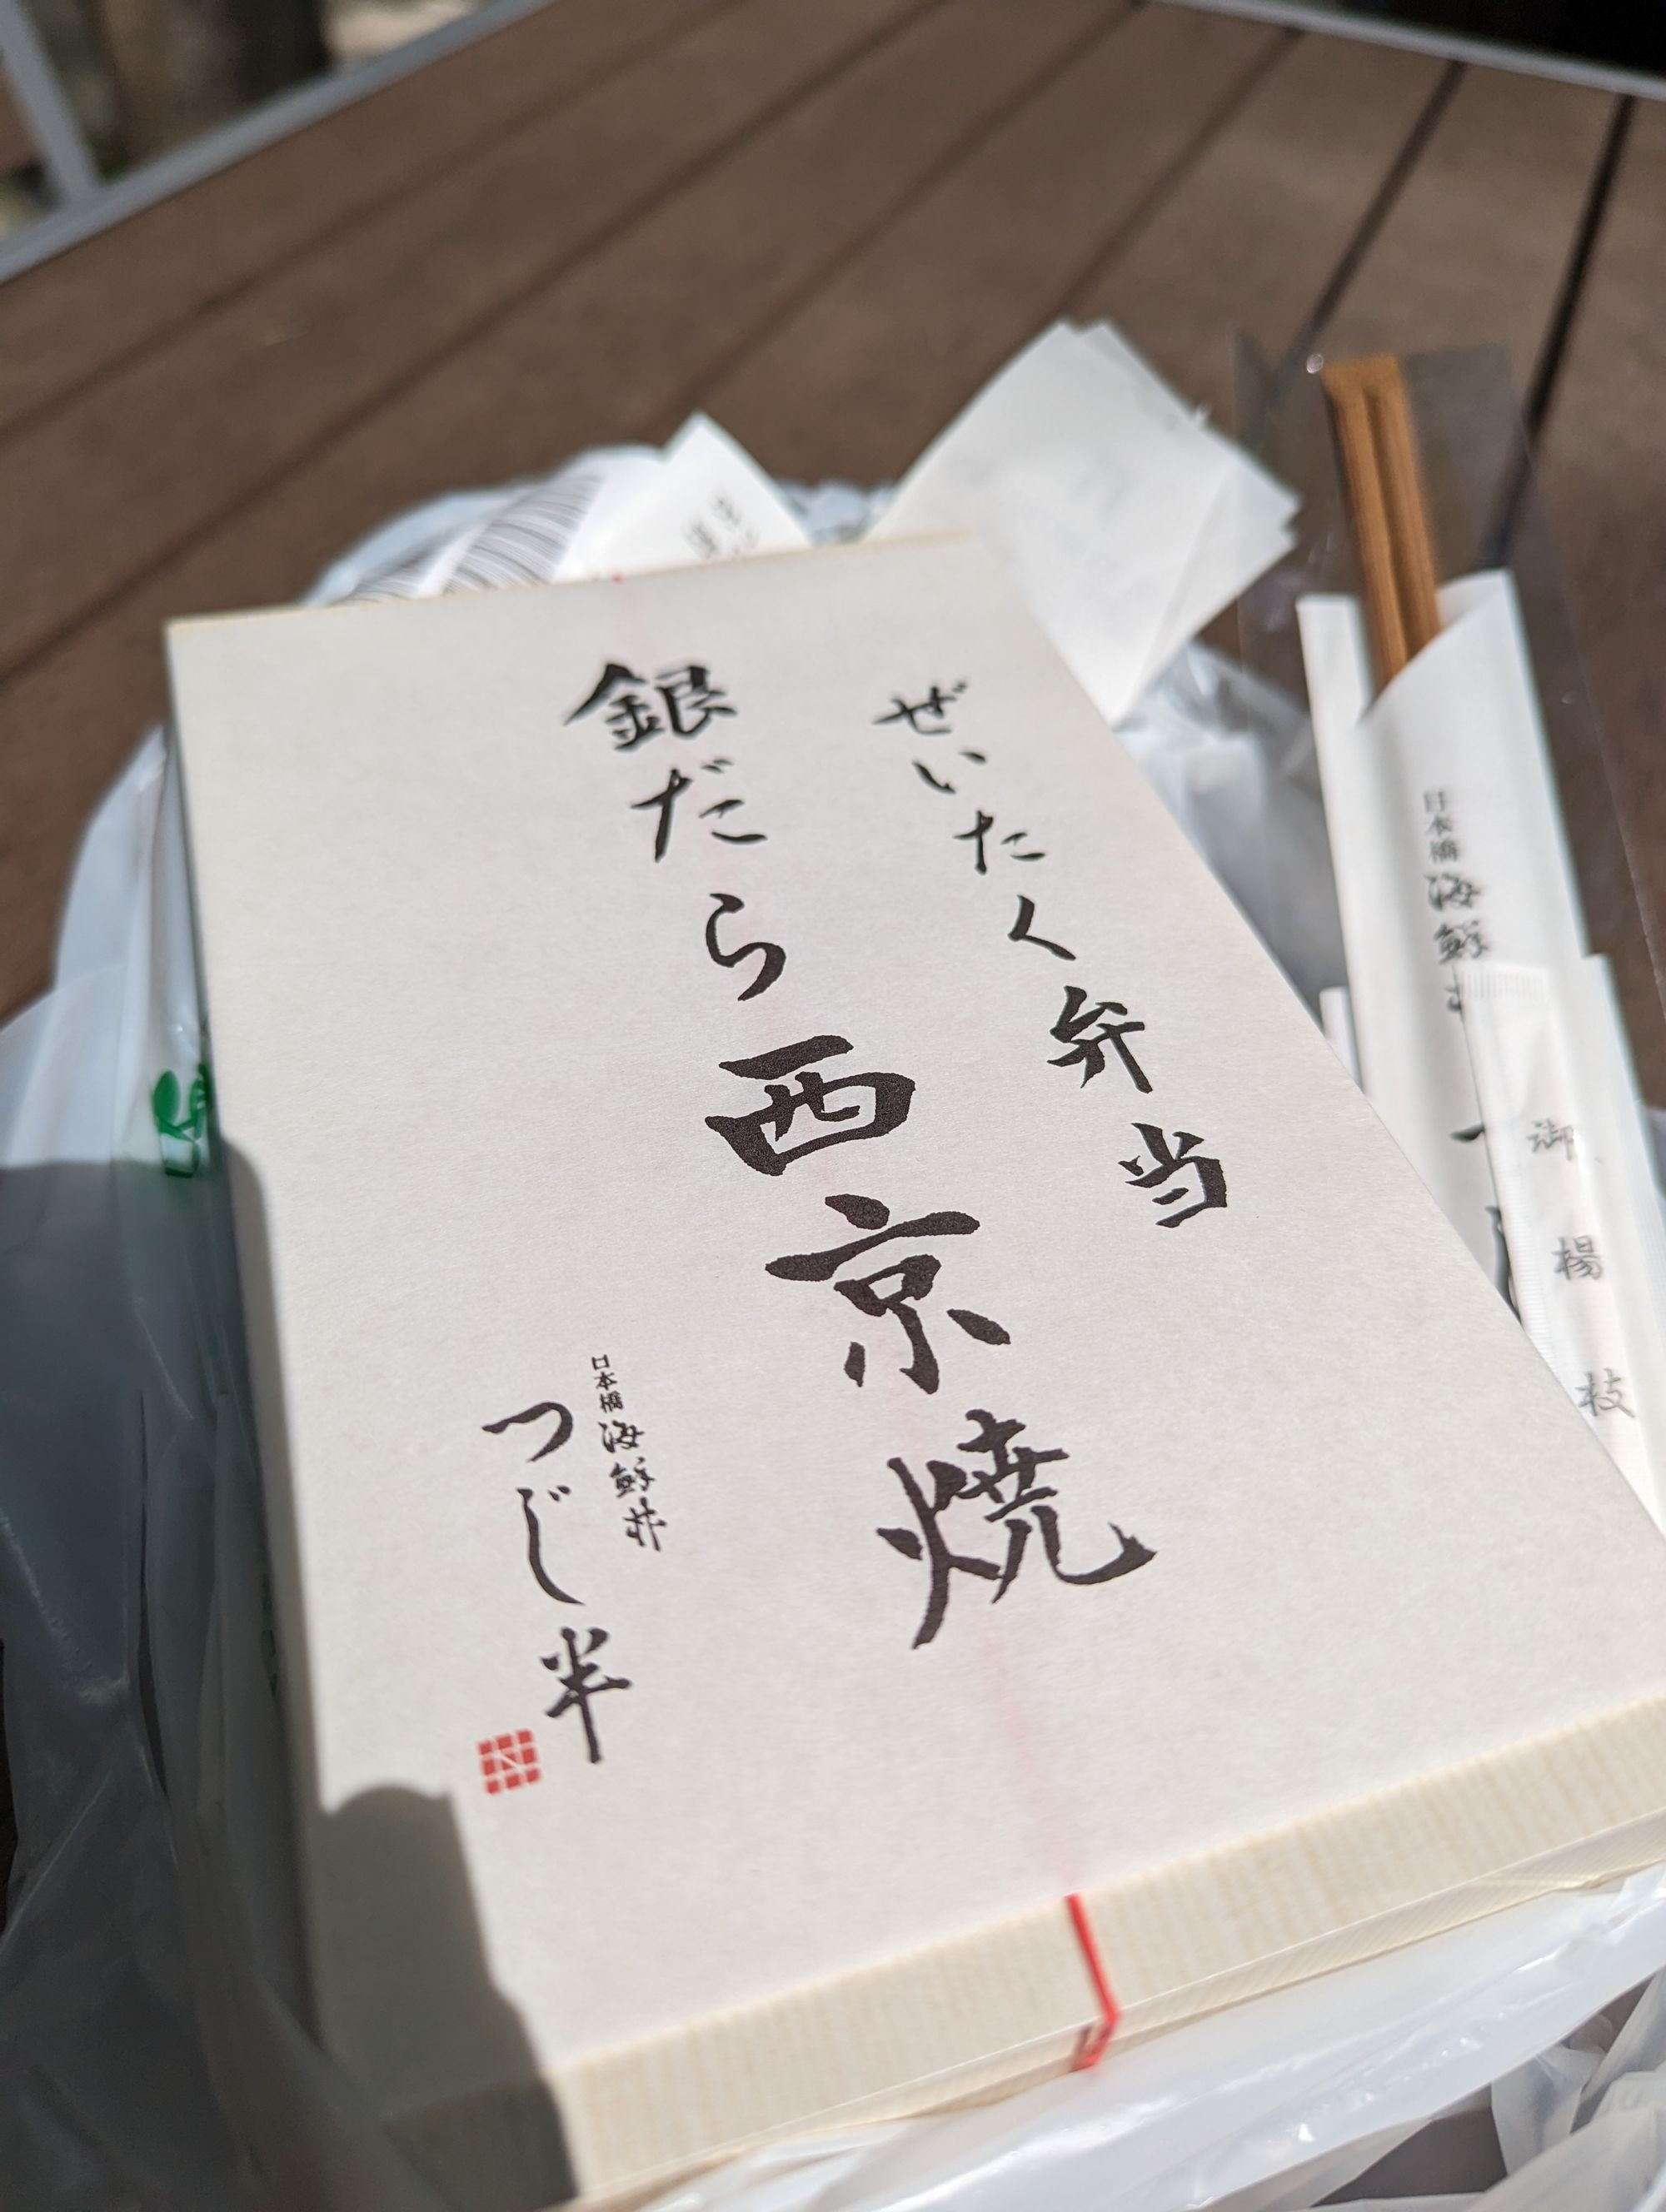 ぜいたく弁当
銀だら西京焼
日本橋海鮮丼
つじ半
日本橋海鮮
御楊枝